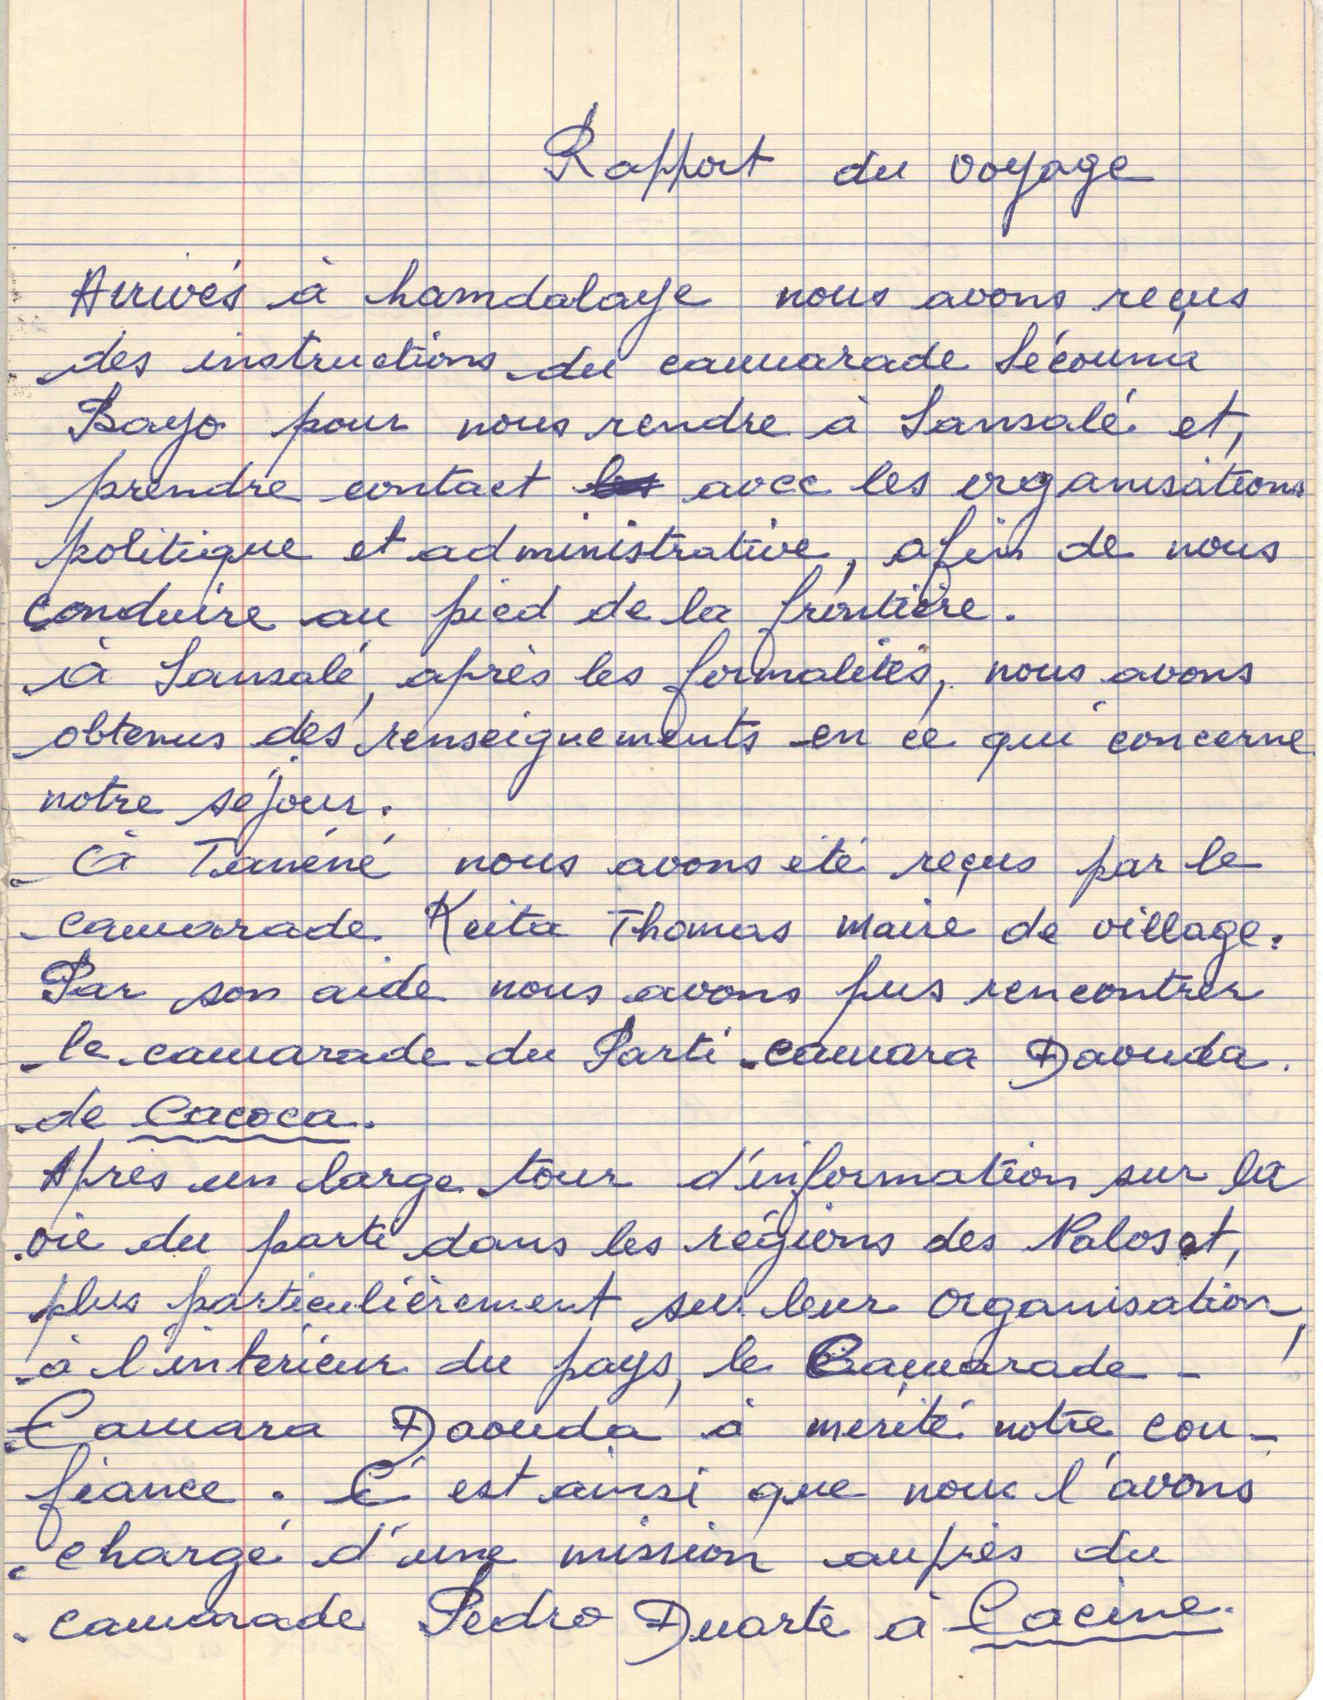 Rapport du voyage
Arrivés à hamdalaye nous avons reçus
des instructions du camarade Sécouna
Bayo pour nous rendre à Sansalé et,
prendre contact avec les organisations
politique et administrative, afin de nous
conduire au pied de la frontière.
à Sansalé, après les formalités, nous avons
obtenus des renseignements en ce qui concerne
notre séjour.
à Tanéné nous avons été reçus par le
camarade Keita Thomas maire de village.
Par son aide nous avons pus rencontrer
le camarade du Parti camara Daouda.
de Cacoca.
Après un large tour d'information sur la
vie du parti dans les régions des Nalos et,
plus particulièrement sur leur organisation,
à l'intérieur du pays, le Camarade -
Camara Daouda à mérité notre con-
fiance. C'est ainsi que nous l'avons
chargé d'une mission auprès du
camarade Pedro Duarte à Cacine.